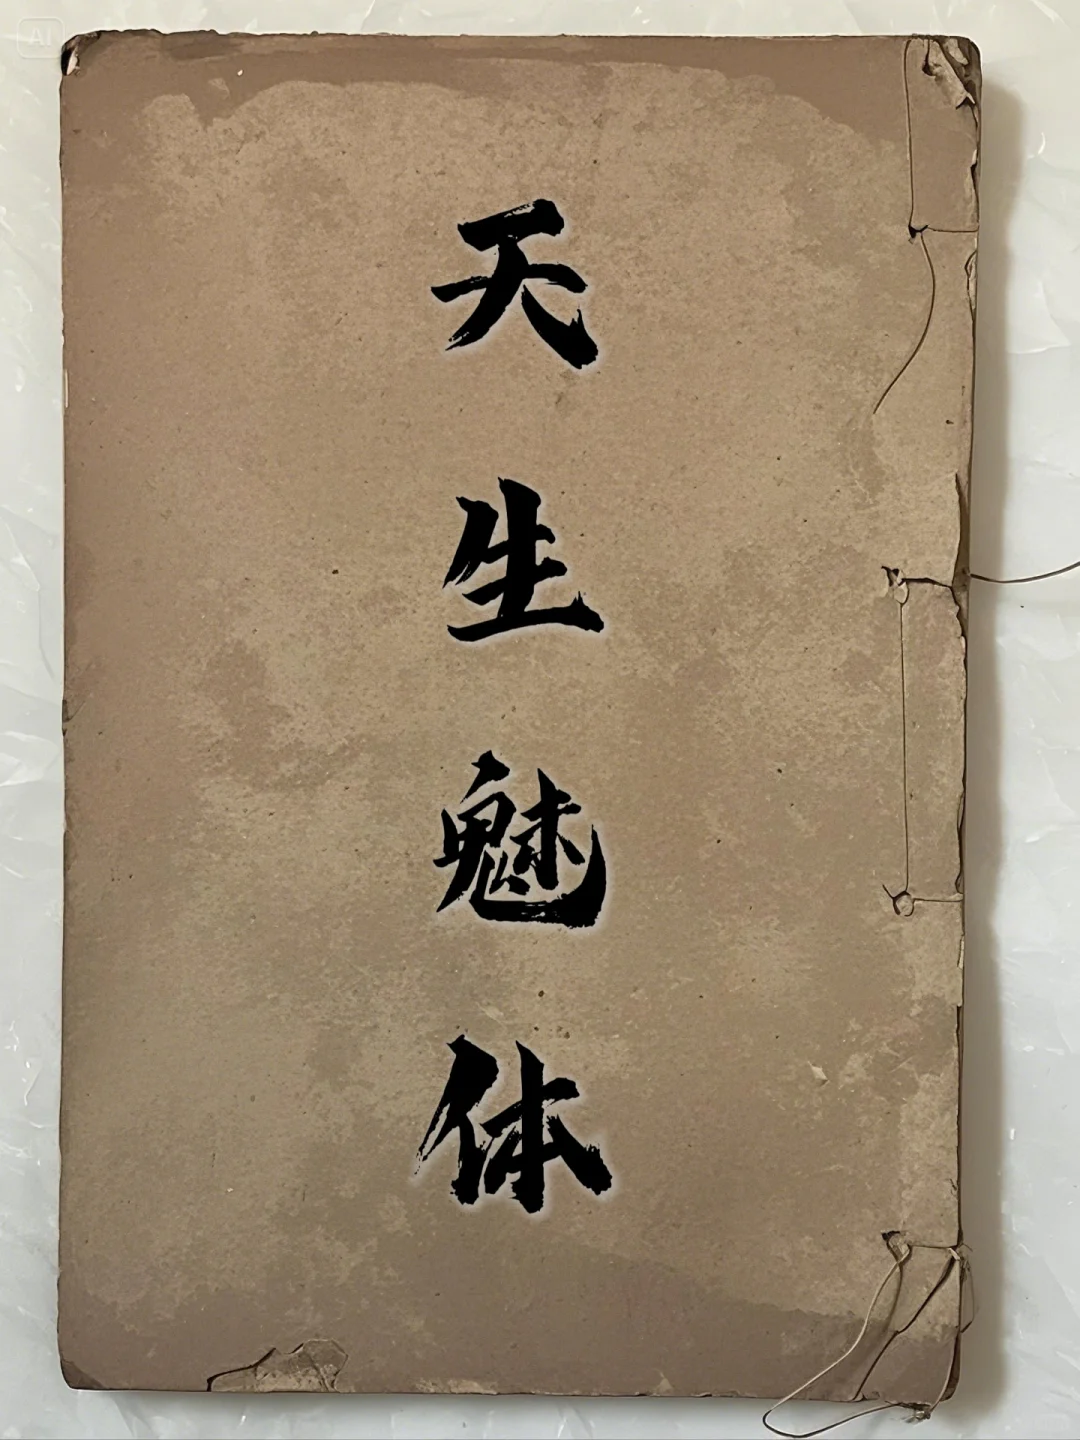 天生魅体
AI